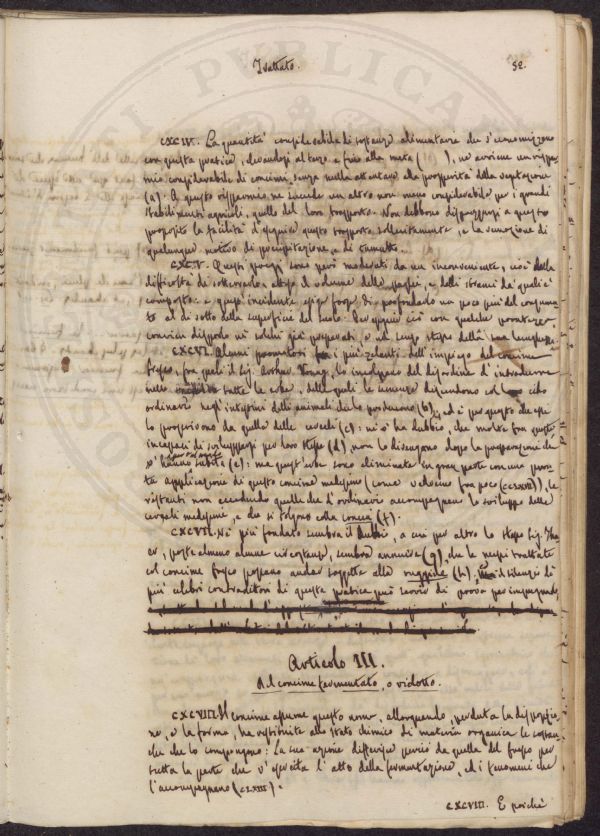 Trattato.
CXCIV. La quantità considerabile di sostanze alimentarie che s'economizzano
con questa pratica, elevandosi al terzo e fino alla metà ( ), ne avviene un rispar-
mio considerabile di concimi senza nulla attentare alla prosperità della vegetazione
(a). A questo risparmio ne succede un altro non meno considerabile per i grandi
stabilimenti agricoli, quello del loro trasporto. Non debbono disprezzarsi a questo
proposito la facilità d'eseguire questo trasporto sollecitamente, e la rimozione di
qualunque motivo di precipitazione, e di tumulto.
CXCV. Questi sono però moderati da un inconveniente, cioè dalla
difficoltà di sotterrarlo, atteso il volume delle paglie, e delli strami de' quali è
composto: e quest'incidente esige forse di profondarlo un poco più del consueto
al di sotto della superficie del suolo. Per eseguire ciò con qualche
convien disporlo ne' solchi già preparati, o nel tempo stesso della
CXCVI. Alcuni promotori fra i più zelanti dell'impiego del concime
fresco, fra quali il Sig. Arthur Young, lo incolpano del disordine d'introdurre
nelle tutte le erbe, delle quali le semenze discendono col loro cibo
ordinario negl'intestini delli animali che lo producono (b), ed è per questo che essi
lo proscrivono da quelle delle cereali (c): nè v'ha dubbio, che molte fra queste
incapaci di svilupparsi per loro stesse (d), non lo divengano dopo la preparazione che
v'hanno subita (e): ma quest'erbe sono eliminate in gran parte con una
applicazione di questo concime medesimo (come vedremo fra poco (CCXXVII)), le
restanti non eccedendo quelle che d'ordinario accompagnano lo sviluppo delle
cereali medesime, e che si tolgono colla (f).
CXCVII. Nè più fondato sembra il dubbio, a cui per altro lo stesso Sig.
poste almeno alcune circostanze, sembra annuire (g), che le messi trattate
col concime fresco possano andar soggette alla ruggine (h), il silenzio di
più celebri contraditori di questa pratica può servir di prova per impugnarlo
Articolo III.
Del concime fermentato, o ridotto.
CXCVIII. Il concime assume questo nome, allorquando, perduta la disposizio-
ne, e la forma, ha restituite allo stato chimico di materia organica le sostan-
ze che lo compongono. La sua azione differisce perciò da quella del fresco per
tutta la parte che v'esercita l'atto della fermentazione, ed i fenomeni che
l'accompagnano (CLXIII).
CXCVIII. E poichè